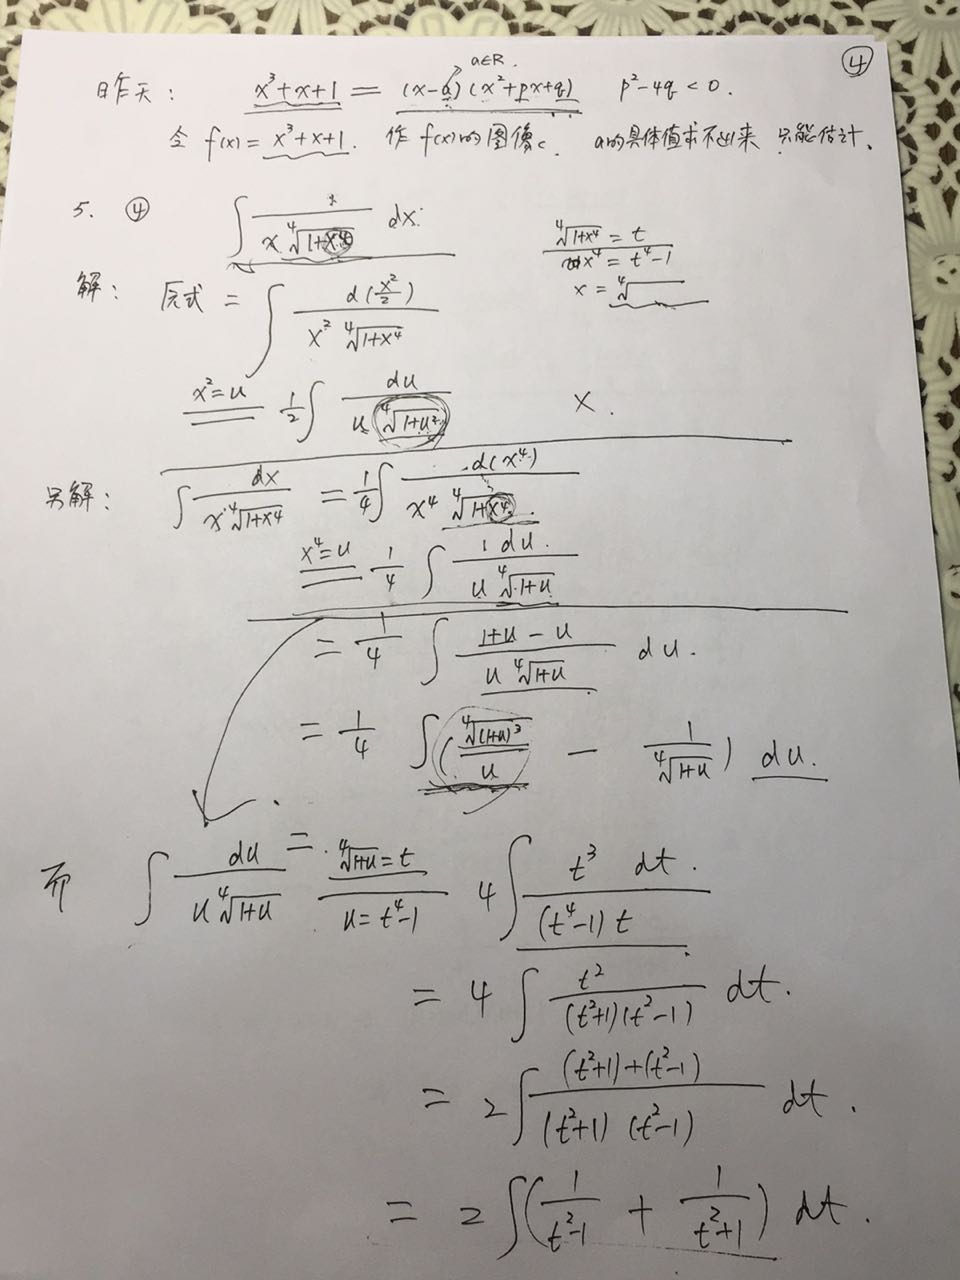 ④
昨天: x³+x+1 = (x-a)(x²+px+q) p²-4q<0.
a∈R.
令 f(x)=x³+x+1. 作 f(x)的图像. a的具体值求不出来 只能估计.
5. ④ ∫ x/(x ⁴√(1+x⁴)) dx.
⁴√(1+x⁴) = t
x⁴ = t⁴-1
x = ⁴√
解: 原式 = ∫ d(x²/2)/(x² ⁴√(1+x⁴))
x²=u 1/2 ∫ du/(u ⁴√(1+u²)) ×.
另解: ∫ dx/(x ⁴√(1+x⁴)) = 1/4 ∫ d(x⁴)/(x⁴ ⁴√(1+x⁴)).
x⁴=u 1/4 ∫ 1 du/(u ⁴√(1+u))
= 1/4 ∫ (1+u-u)/(u ⁴√(1+u)) du.
= 1/4 ∫ (⁴√(1+u)³/u - 1/⁴√(1+u)) du.
而 ∫ du/(u ⁴√(1+u)) = ⁴√(1+u)=t u=t⁴-1 4∫ t³ dt/((t⁴-1)t).
= 4∫ t²/((t²+1)(t²-1)) dt.
= 2∫ ((t²+1)+(t²-1))/((t²+1)(t²-1)) dt.
= 2∫(1/(t²-1) + 1/(t²+1)) dt.